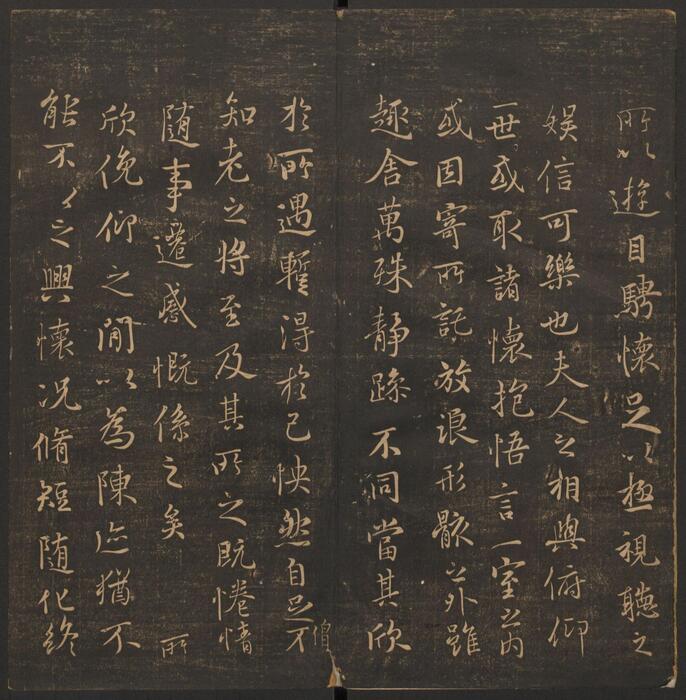 所以遊目騁懷足以極視聽之
娛信可樂也夫人之相與俯仰
一世或取諸懷抱悟言一室之內
或因寄所託放浪形骸之外雖
趣舍萬殊靜躁不同當其欣
僧
於所遇暫得於己怏然自足不
知老之將至及其所之既惓情
隨事遷感慨係之矣 所
欣俛仰之閒以為陳迹猶不
能不以之興懷況脩短隨化終